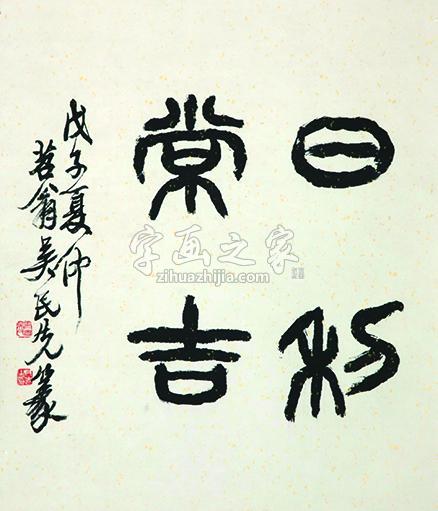 日利
常吉
戊子夏仲
苕翁吴民先篆
字画之家
zihuazhijia.com